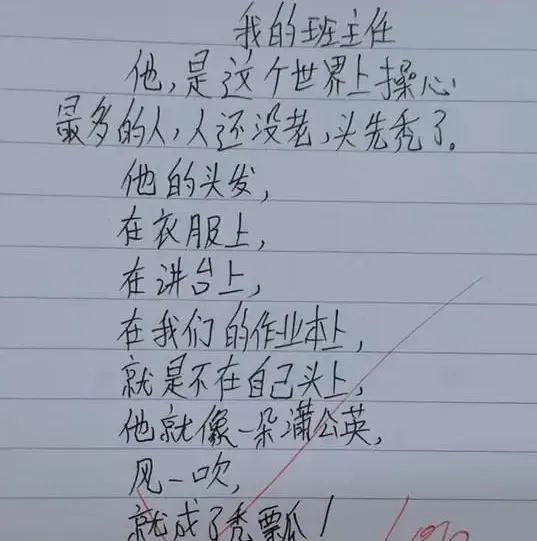 我的班主任
他,是这个世界上操心
最多的人,人还没老,头先秃了。
他的头发,
在衣服上,
在讲台上,
在我们的作业本上,
就是不在自己头上,
他就像一朵蒲公英,
风一吹,
就成了秃瓢!